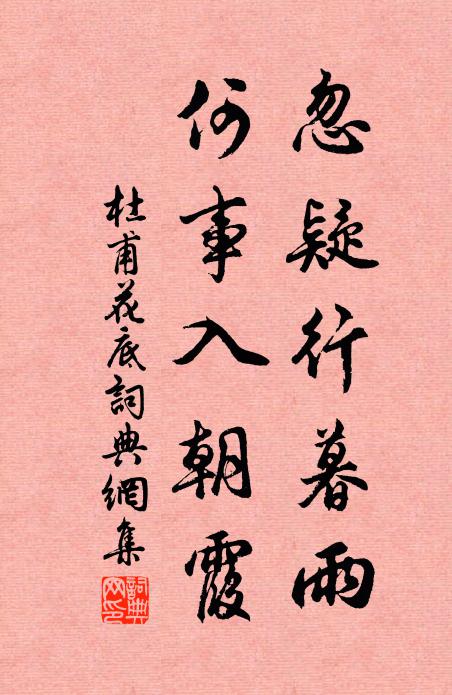 忽疑行暮雨
何事入朝霞
杜甫花底詞典網集
詞典网印